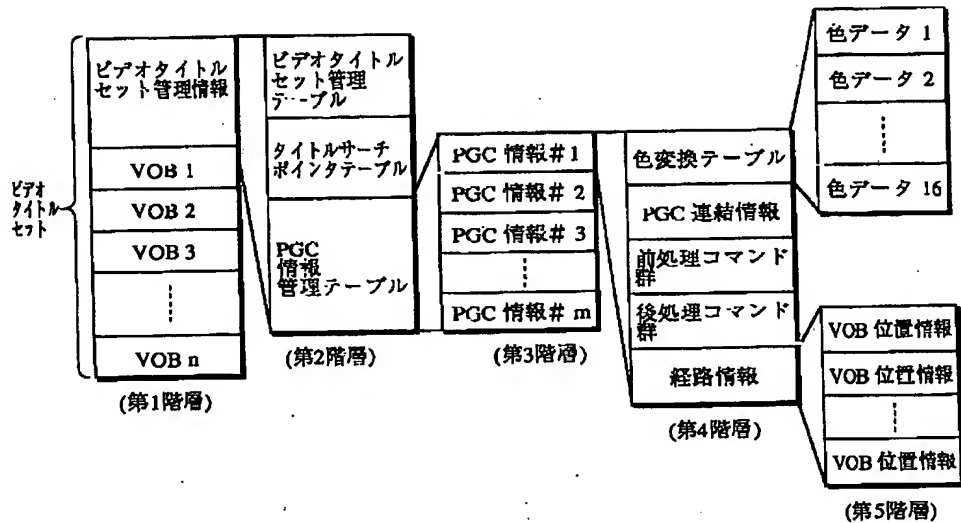 ビデオ
タイトル
セット
ビデオタイトル
セット管理情報
VOB 1
VOB 2
VOB 3
VOB n
(第1階層)
ビデオタイトル
セット管理
テーブル
タイトルサーチ
ポインタテーブル
PGC
情報
管理テーブル
(第2階層)
PGC 情報# 1
PGC 情報# 2
PGC 情報# 3
PGC 情報# m
(第3階層)
色変換テーブル
PGC 連結情報
前処理コマンド
群
後処理コマンド
群
経路情報
(第4階層)
色データ 1
色データ 2
色データ 16
VOB 位置情報
VOB 位置情報
VOB 位置情報
(第5階層)